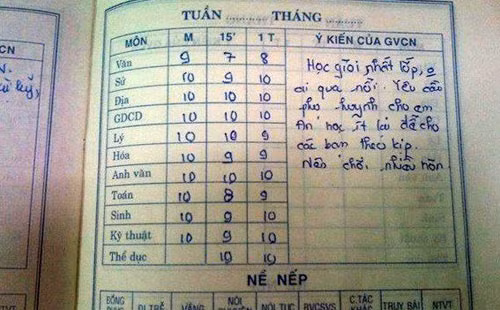 TUẦN ........ THÁNG ........
CN
MÔN M 15' 1 T Ý KIẾN CỦA GVCN
Văn 9 7 8
Sử 10 9 10
Địa 10 10 10
GDCD 10 10 10
Lý 10 10 9
Hóa 10 9 9
Anh văn 10 10 10
Toán 10 8 9
Sinh 10 9 10
Kỹ thuật 10 9 10
Thể dục 10 10
Học giỏi nhất lớp, o
ai qua nổi. Yêu cầu
phụ huynh cho em
An học ít lại để cho
các bạn theo kịp.
Nên chơi nhiều hơn
NỀ NẾP
ĐỒNG ĐI TRỄ VẮNG NÓI NÓI TỤC BVCSVS C.TÁC TRUY BÀI NTVT
KHÁC